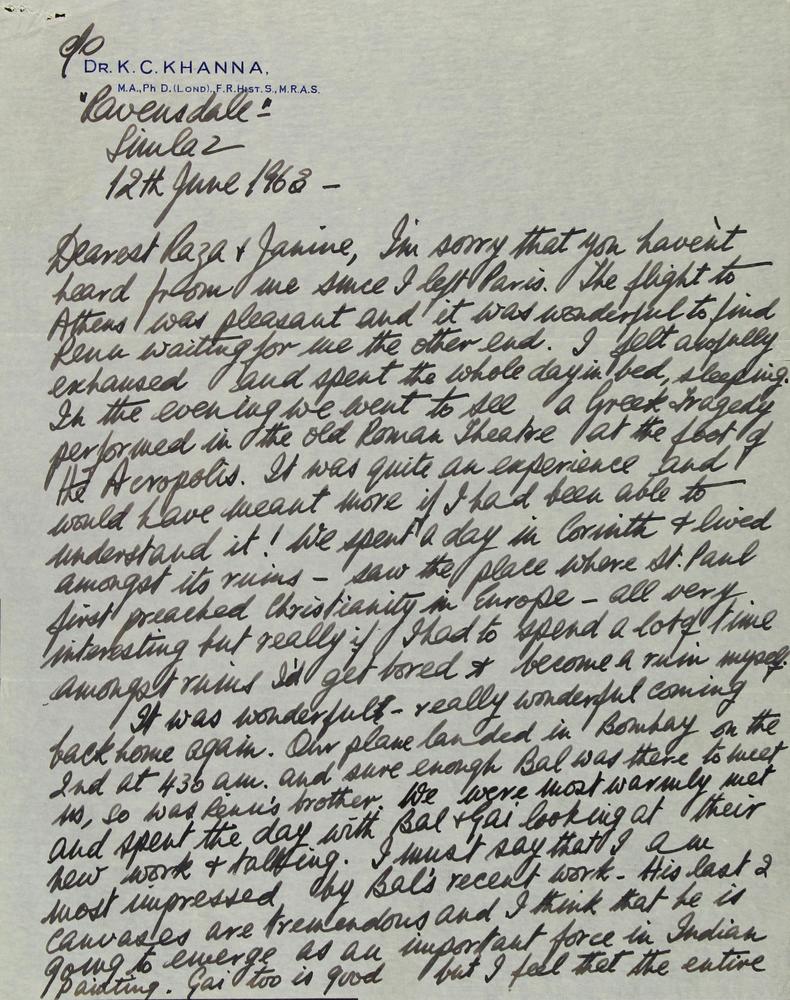 c/o
DR. K. C. KHANNA,
M.A., Ph D. (LOND), F.R. HIST. S., M.R.A.S.
"Ravensdale" -
Simla 2
12th June 1963 -
Dearest Raza & Janine, I'm sorry that you haven't
heard from me since I left Paris. The flight to
Athens was pleasant and it was wonderful to find
Renu waiting for me the other end. I felt awfully
exhaused and spent the whole day in bed, sleeping.
In the evening we went to see a Greek Tragedy
performed in the old Roman Theatre at the foot of
the Acropolis. It was quite an experience and
would have meant more if I had been able to
understand it! We spent a day in Corinth & lived
amongst its ruins - saw the place where St. Paul
first preached Christianity in Europe - all very
interesting but really if I had to spend a lot of time
amongst ruins I'd get bored & become a ruin myself.
It was wonderful - really wonderful coming
back home again. Our plane landed in Bombay on the
2nd at 430 a.m. and sure enough Bal was there to meet
us, so was Renu's brother. We were most warmly met
and spent the day with Bal & Gai looking at their
new work & talking. I must say that I am
most impressed by Bal's recent work - His last 2
canvases are tremendous and I think that he is
going to emerge as an important force in Indian
Painting. Gai too is good but I feel that the entire